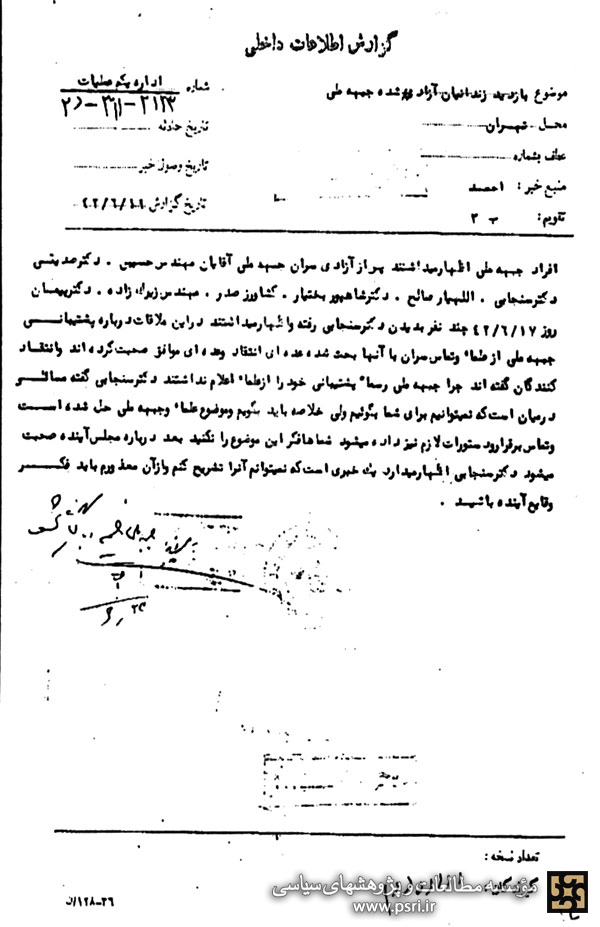 گزارش اطلاعات داخلی
موضوع بازدید زندانیان آزاد شده جبهه ملی
شماره اداره یکم عملیات
۲۱۲۳-۳۱۱-۲۵
محل- تهران
تاریخ حادثه
عطف بشماره
تاریخ وصول خبر
منبع خبر: احمد
تاریخ گزارش ۴۲/۶/۱۹
تقویم: ب ۳
افراد جبهه ملی اظهار میداشتند پس از آزادی سران جبهه ملی آقایان مهندس حسیبی . دکتر صدیقی
دکتر سنجابی . اللهیار صالح . دکتر شاهپور بختیار . کشاورز صدر . مهندس زیرک زاده . دکتر پیمان
روز ۴۲/۶/۱۷ چند نفر بدیدن دکتر سنجابی رفته و اظهار میداشتند در این ملاقات درباره پشتیبانی
جبهه ملی از علماء و تماس سران با آنها بحث شده عده ای انتقاد و عده ای موافق صحبت کرده اند و انتقاد
کنندگان گفته اند چرا جبهه ملی رسماً پشتیبانی خود را از علماء اعلام نداشتند دکتر سنجابی گفته مسائلی
در میان است که نمیتوانیم برای شما بگوئیم ولی خلاصه باید بگویم موضوع علماء و جبهه ملی حل شده است
و تماس برقرار و دستورات لازم نیز داده میشود شما ها فکر این موضوع را نکنید بعد درباره مجلس آینده صحبت
میشود دکتر سنجابی اظهار میدارد یک خبری است که نمیتوانم آنرا تشریح کنم و از آن معذورم باید فکر
وقایع آینده باشید .
تعداد نسخه :
گیرندگان:
مؤسسه مطالعات و پژوهشهای سیاسی
www.psri.ir
۳۶-۱۲۸/ن